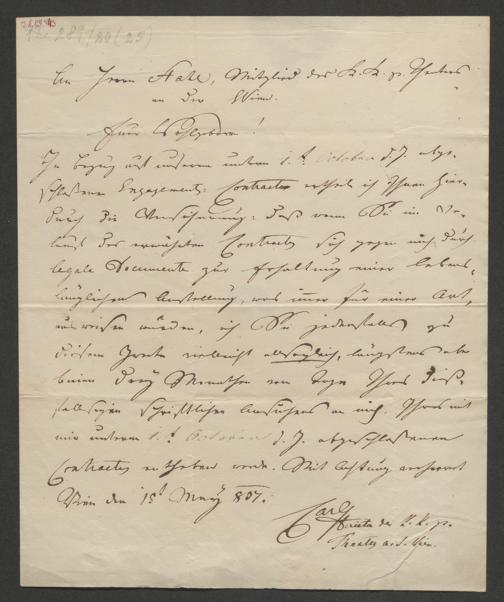 An Herrn Just, Mitglied des k. k. p. Theaters
an der Wien.
Euer Wohlgeboren!
In Bezug auf unseren unterm 1. t October d. J. abge-
schlossenen Engagements: Contractes ertheile ich Ihnen hier-
durch die Versicherung: daß wenn Sie im Ver-
laufe des erwähnten Contractes sich gegen mich durch
legale Documente zur Erhaltung einer lebens-
länglichen Anstellung, was immer für einer Art,
ausweisen würden, ich Sie jedenfalls zu
diesem Zwecke vielleicht allsogleich, längstens aber
binnen drey Monathen vom Tage Ihres dieß-
fallsigen schriftlichen Ansuchens an mich, Ihres mit
mir unterm 1. t October d. J. abgeschlossenen
Contractes entheben werde. Mit Achtung
Wien den 15t März 837.
Carl
Director des k. k. p.
Theaters a. d. Wien.